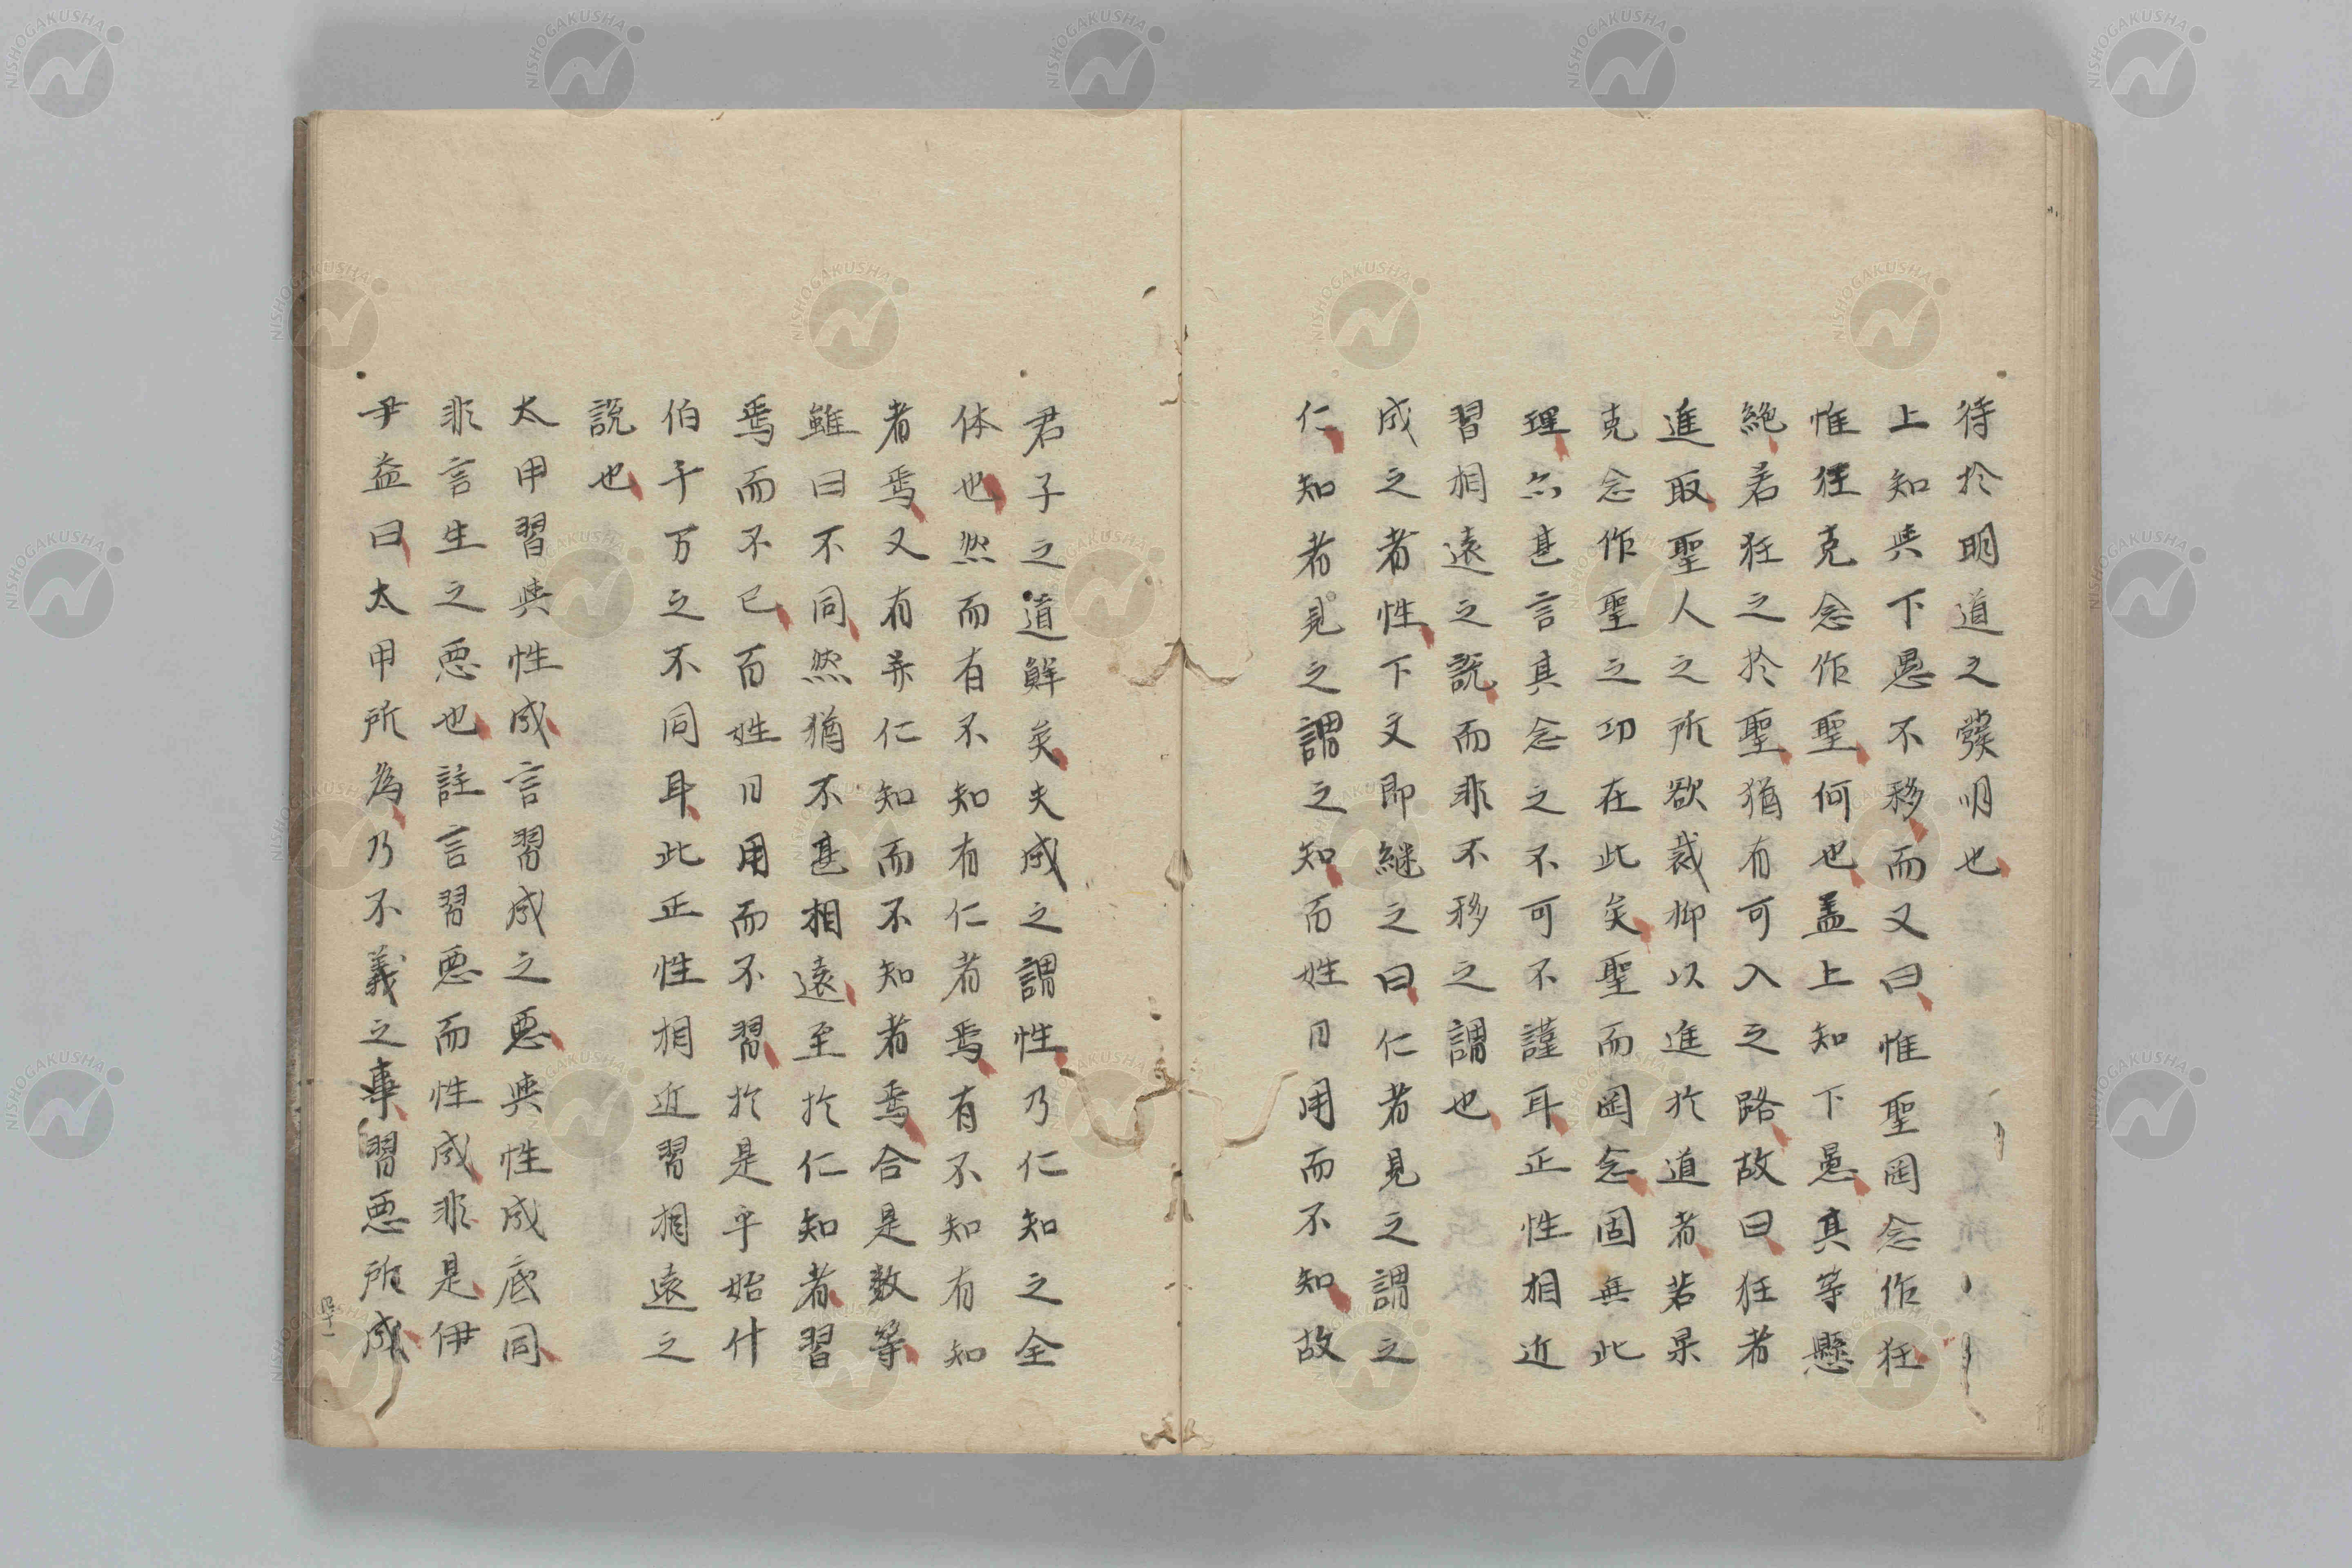 待於明道之發明也
上知與下愚不移而又曰惟聖罔念作狂
惟狂克念作聖何也盖上知下愚其等懸
絶若狂之於聖猶有可入之路故曰狂者
進取聖人之所欲裁抑以進於道者若果
克念作聖之功在此矣聖而罔念固無此
理亦甚言其念之不可不謹耳正性相近
習相遠之說而非不移之謂也
成之者性下文即継之曰仁者見之謂之
仁知者見之謂之知百姓日用而不知故
君子之道鮮矣夫成之謂性乃仁知之全
体也然而有不知有仁者焉有不知有知
者焉又有并仁知而不知者焉合是数等
雖曰不同然猶不甚相遠至於仁知者習
焉而不已百姓日用而不習於是乎始什
伯千万之不同耳此正性相近習相遠之
說也
太甲習與性成言習成之惡與性成底同
非言生之惡也註言習惡而性成非是伊
尹益曰太甲所為乃不義之事習惡所成
四十一
NISHOGAKUSHA